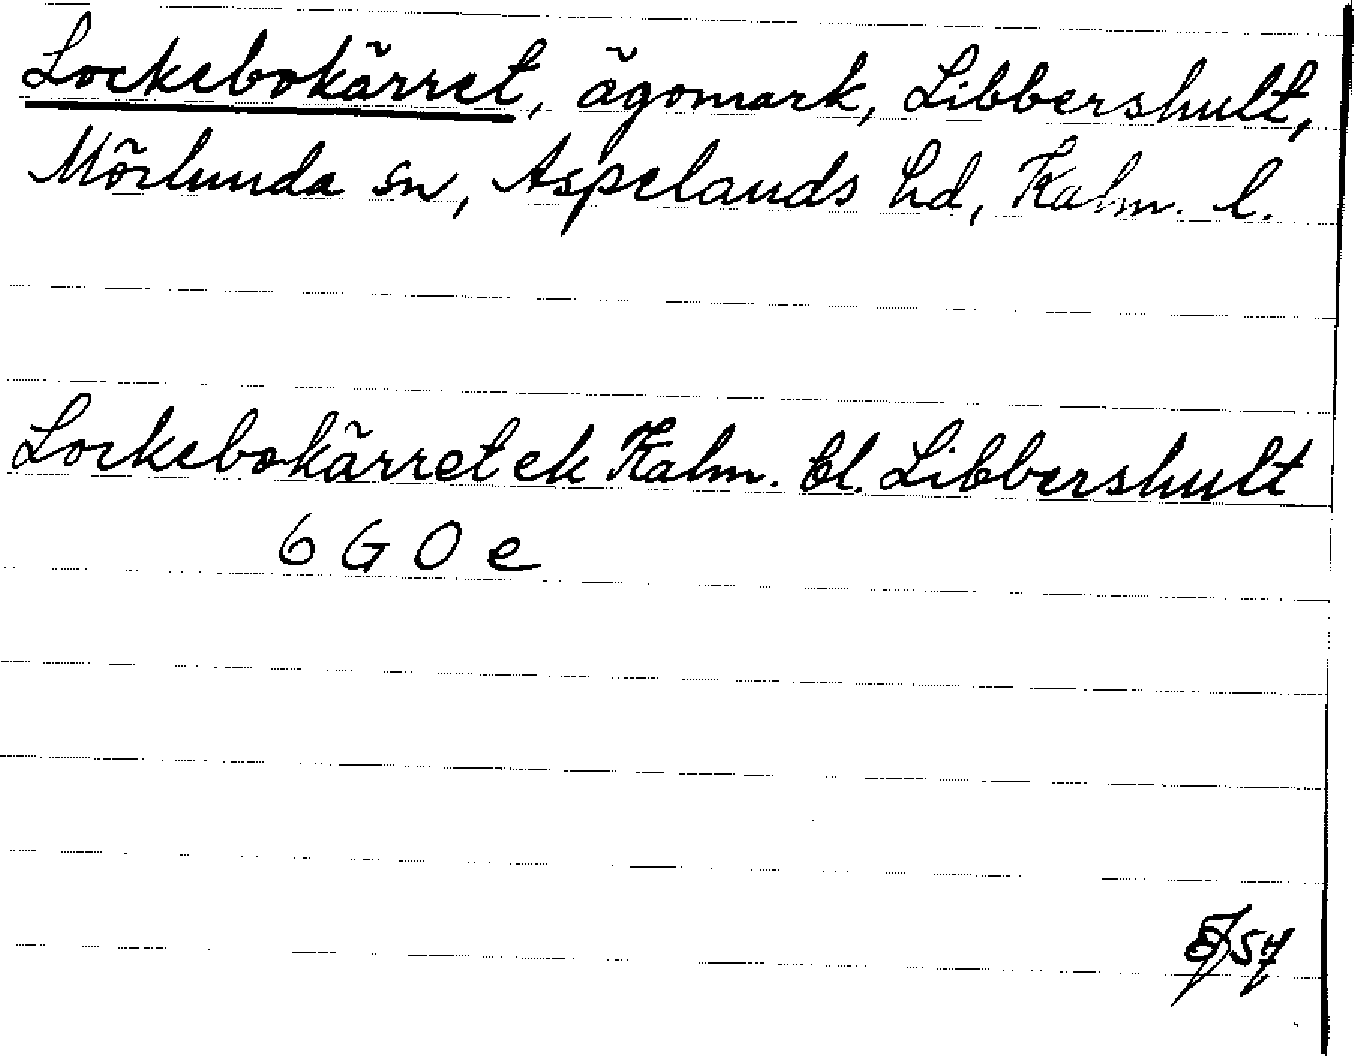 Lockebokärret, ägomark, Libbershult,
Mörlunda sn, Aspelands hd, Kalm. l.
Lockebokärret ek Kalm. bl. Libbershult
6 G 0 e